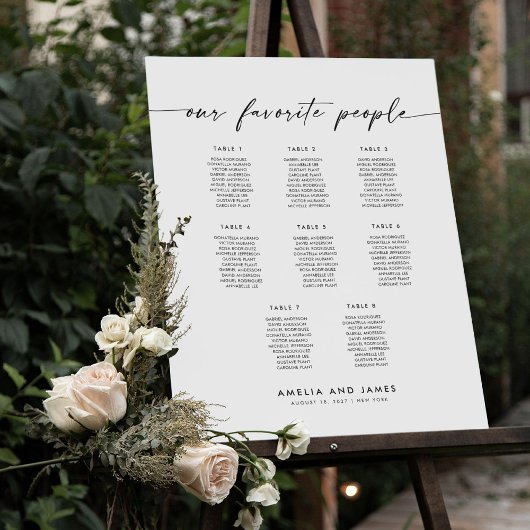 our favorite people
TABLE 1
ROSA RODRIGUEZ
DONATELLA MURANO
VICTOR MURANO
DAVID ANDERSON
MIGUEL RODRIGUEZ
MICHELLE JEFFERSON
ANNABELLE LEE
GUSTAVE PLANT
CAROLINE PLANT
TABLE 2
GABRIEL ANDERSON
ANNABELLE LEE
GUSTAVE PLANT
CAROLINE PLANT
DAVID ANDERSON
MIGUEL RODRIGUEZ
ROSA RODRIGUEZ
DONATELLA MURANO
VICTOR MURANO
MICHELLE JEFFERSON
TABLE 3
DAVID ANDERSON
MIGUEL RODRIGUEZ
ANNABELLE LEE
GUSTAVE PLANT
CAROLINE PLANT
ROSA RODRIGUEZ
DONATELLA MURANO
VICTOR MURANO
MICHELLE JEFFERSON
TABLE 4
DONATELLA MURANO
VICTOR MURANO
ROSA RODRIGUEZ
MICHELLE JEFFERSON
GUSTAVE PLANT
CAROLINE PLANT
GABRIEL ANDERSON
DAVID ANDERSON
MIGUEL RODRIGUEZ
ANNABELLE LEE
TABLE 5
GABRIEL ANDERSON
DAVID ANDERSON
MIGUEL RODRIGUEZ
ANNABELLE LEE
GUSTAVE PLANT
CAROLINE PLANT
ROSA RODRIGUEZ
DONATELLA MURANO
VICTOR MURANO
MICHELLE JEFFERSON
TABLE 6
ROSA RODRIGUEZ
DONATELLA MURANO
VICTOR MURANO
MICHELLE JEFFERSON
DAVID ANDERSON
MIGUEL RODRIGUEZ
ANNABELLE LEE
GUSTAVE PLANT
CAROLINE PLANT
TABLE 7
GABRIEL ANDERSON
DAVID ANDERSON
MIGUEL RODRIGUEZ
DONATELLA MURANO
VICTOR MURANO
MICHELLE JEFFERSON
ROSA RODRIGUEZ
ANNABELLE LEE
GUSTAVE PLANT
CAROLINE PLANT
TABLE 8
ROSA RODRIGUEZ
DONATELLA MURANO
VICTOR MURANO
MICHELLE JEFFERSON
DAVID ANDERSON
MIGUEL RODRIGUEZ
ANNABELLE LEE
GUSTAVE PLANT
CAROLINE PLANT
AMELIA AND JAMES
AUGUST 18, 2027 | NEW YORK